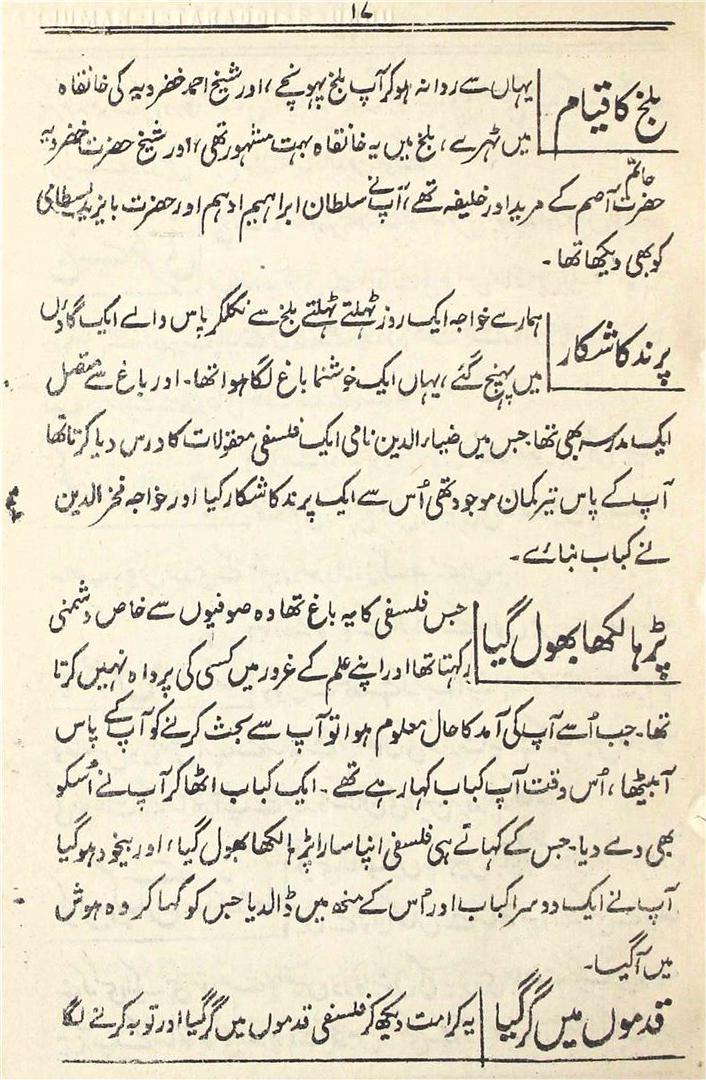 ۱۷
بلخ کا قیام
یہاں سے روانہ ہو کر آپ بلخ پہونچے، اور شیخ احمد خضرویہ کی خانقاہ
میں ٹہرے، بلخ میں یہ خانقاہ بہت مشہور تھی، اور شیخ حضرت خضرویہ
حضرت حاتم اصم کے مرید اور خلیفہ تھے، آپ نے سلطان ابراہیم ادہم اور حضرت بایزید بسطامی
کو بھی دیکھا تھا۔
پرند کا شکار
ہمارے خواجہ ایک روز ٹہلتے ٹہلتے بلخ سے نکلکر پاس والے ایک گاؤں
میں پہنچ گئے، یہاں ایک خوشنما باغ لگا ہوا تھا۔ اور باغ سے متصل
ایک مدرسہ بھی تھا۔ جس میں ضیاء الدین نامی ایک فلسفی معقولات کا درس دیا کرتا تھا
آپ کے پاس تیر کمان موجود تھی اُس سے ایک پرند کا شکار کیا اور خواجہ فخر الدین
نے کباب بنائے۔
پڑہا لکھا بھول گیا
جس فلسفی کا یہ باغ تھا وہ صوفیوں سے خاص دشمنی
رکہتا تھا اور اپنے علم کے غرور میں کسی کی پرواہ نہیں کرتا
تھا۔ جب اُسے آپ کی آمد کا حال معلوم ہوا تو آپ سے بحث کرنے کو آپ کے پاس
آ بیٹھا، اُس وقت آپ کباب کہا رہے تھے۔ ایک کباب اٹھا کر آپ نے اُسکو
بھی دے دیا۔ جس کے کہاتے ہی فلسفی اپنا سارا پڑہا لکھا بھول گیا، اور بیخود ہو گیا
آپ نے ایک دوسرا کباب اور اُس کے منھ میں ڈالدیا جس کو کہا کر وہ ہوش
میں آگیا۔
قدموں میں گر گیا
یہ کرامت دیکھ کر فلسفی قدموں میں گر گیا اور توبہ کرنے لگا